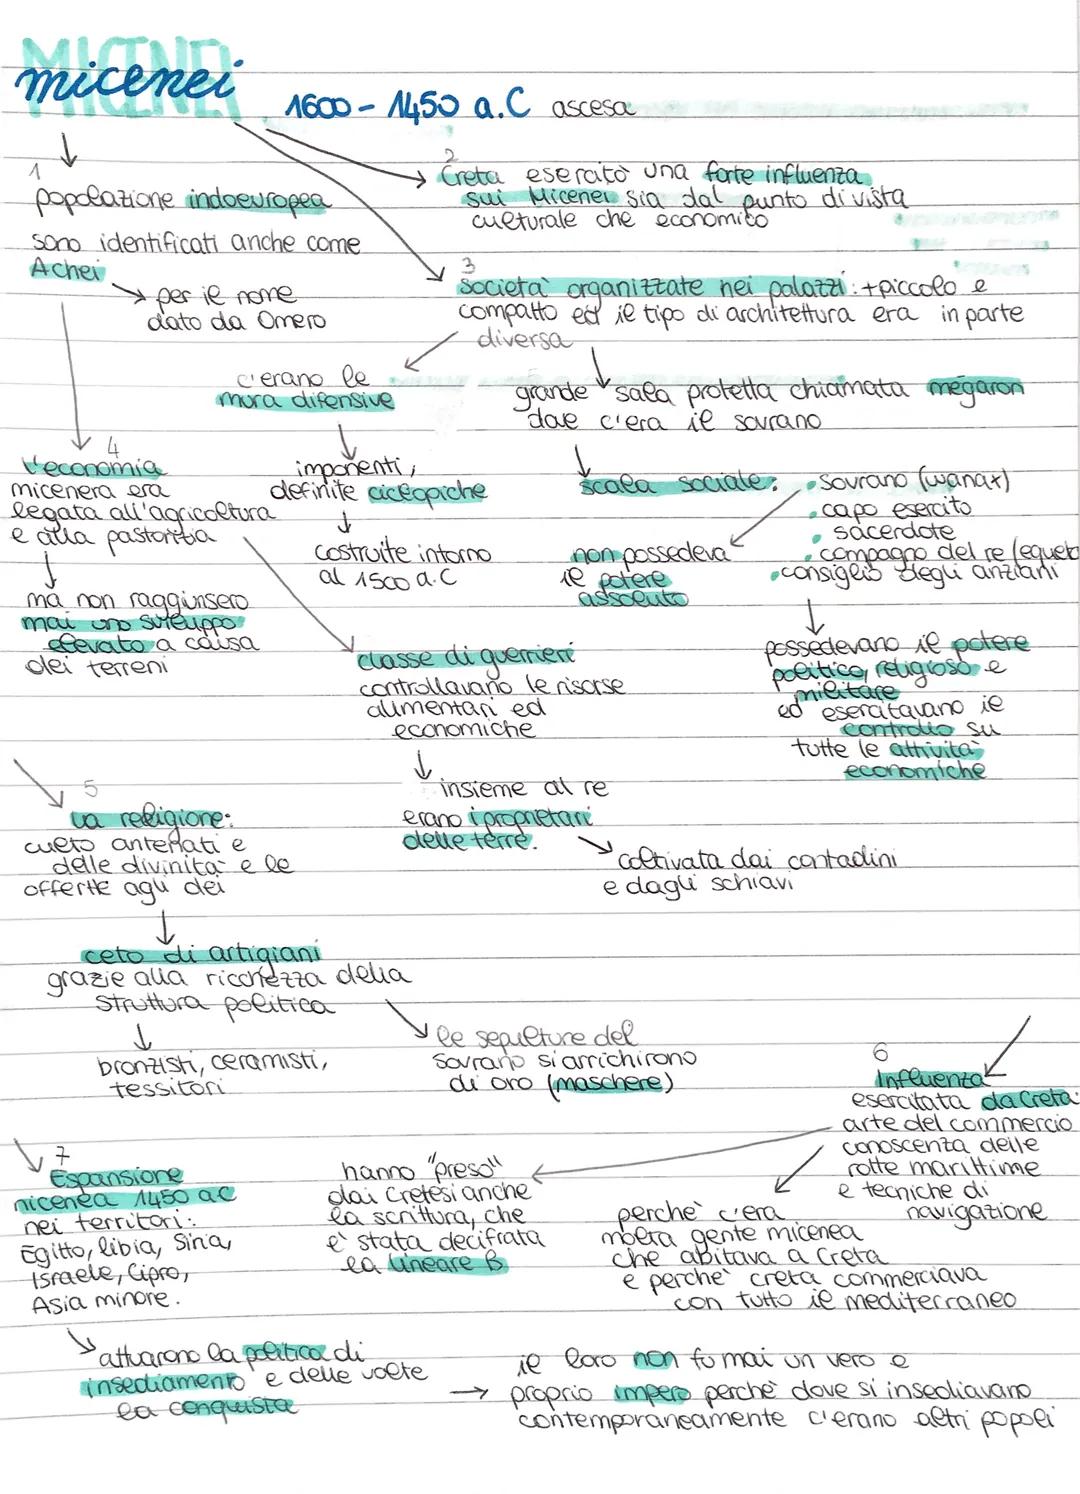 MICENEI
micenei
1600 - 1450 a.C ascesa
1
popolazione indoeuropea
sono identificati anche come
Achei
per il nome
dato da Omero
2
Creta esercitò una forte influenza
sui Micenei sia dal punto di vista
culturale che economico
3
società organizzate nei palazzi: + piccolo e
compatto ed il tipo di architettura era in parte
diversa
c'erano le
mura difensive
imponenti,
definite ciclopiche
costruite intorno
al 1500 a.C
grande sala protetta chiamata mégaron
dove c'era il sovrano
scala sociale:
• sovrano (wanax)
• capo esercito
• sacerdote
• compagno del re (equeta
• consiglio degli anziani
non possedeva
il potere
assoluto
possedevano il potere
politico, religioso e
militare
ed esercitavano il
controllo su
tutte le attività
economiche
4
l'economia
micenera era
legata all'agricoltura
e alla pastorizia
ma non raggiunsero
mai uno sviluppo
elevato a causa
dei terreni
classe di guerrieri
controllavano le risorse
alimentari ed
economiche
insieme al re
erano i proprietari
delle terre.
coltivata dai contadini
e dagli schiavi
5
la religione:
culto antenati e
delle divinità e le
offerte agli dei
ceto di artigiani
grazie alla ricchezza della
struttura politica
bronzisti, ceramisti,
tessitori
le sepolture del
sovrano si arrichirono
di oro (maschere)
6
Influenza
esercitata da Creta:
arte del commercio
conoscenza delle
rotte marittime
e tecniche di
navigazione
hanno "preso"
dai Cretesi anche
la scrittura, che
è stata decifrata
la lineare B
perchè c'era
molta gente micenea
che abitava a Creta
e perchè creta commerciava
con tutto il mediterraneo
7
Espansione
micenea 1450 a.C
nei territori:
Egitto, libia, Siria,
Israele, Cipro,
Asia minore.
attuarono la politica di
insediamento e delle volte
la conquista
il loro non fu mai un vero e
proprio impero perchè dove si insediavano
contemporaneamente c'erano altri popoli